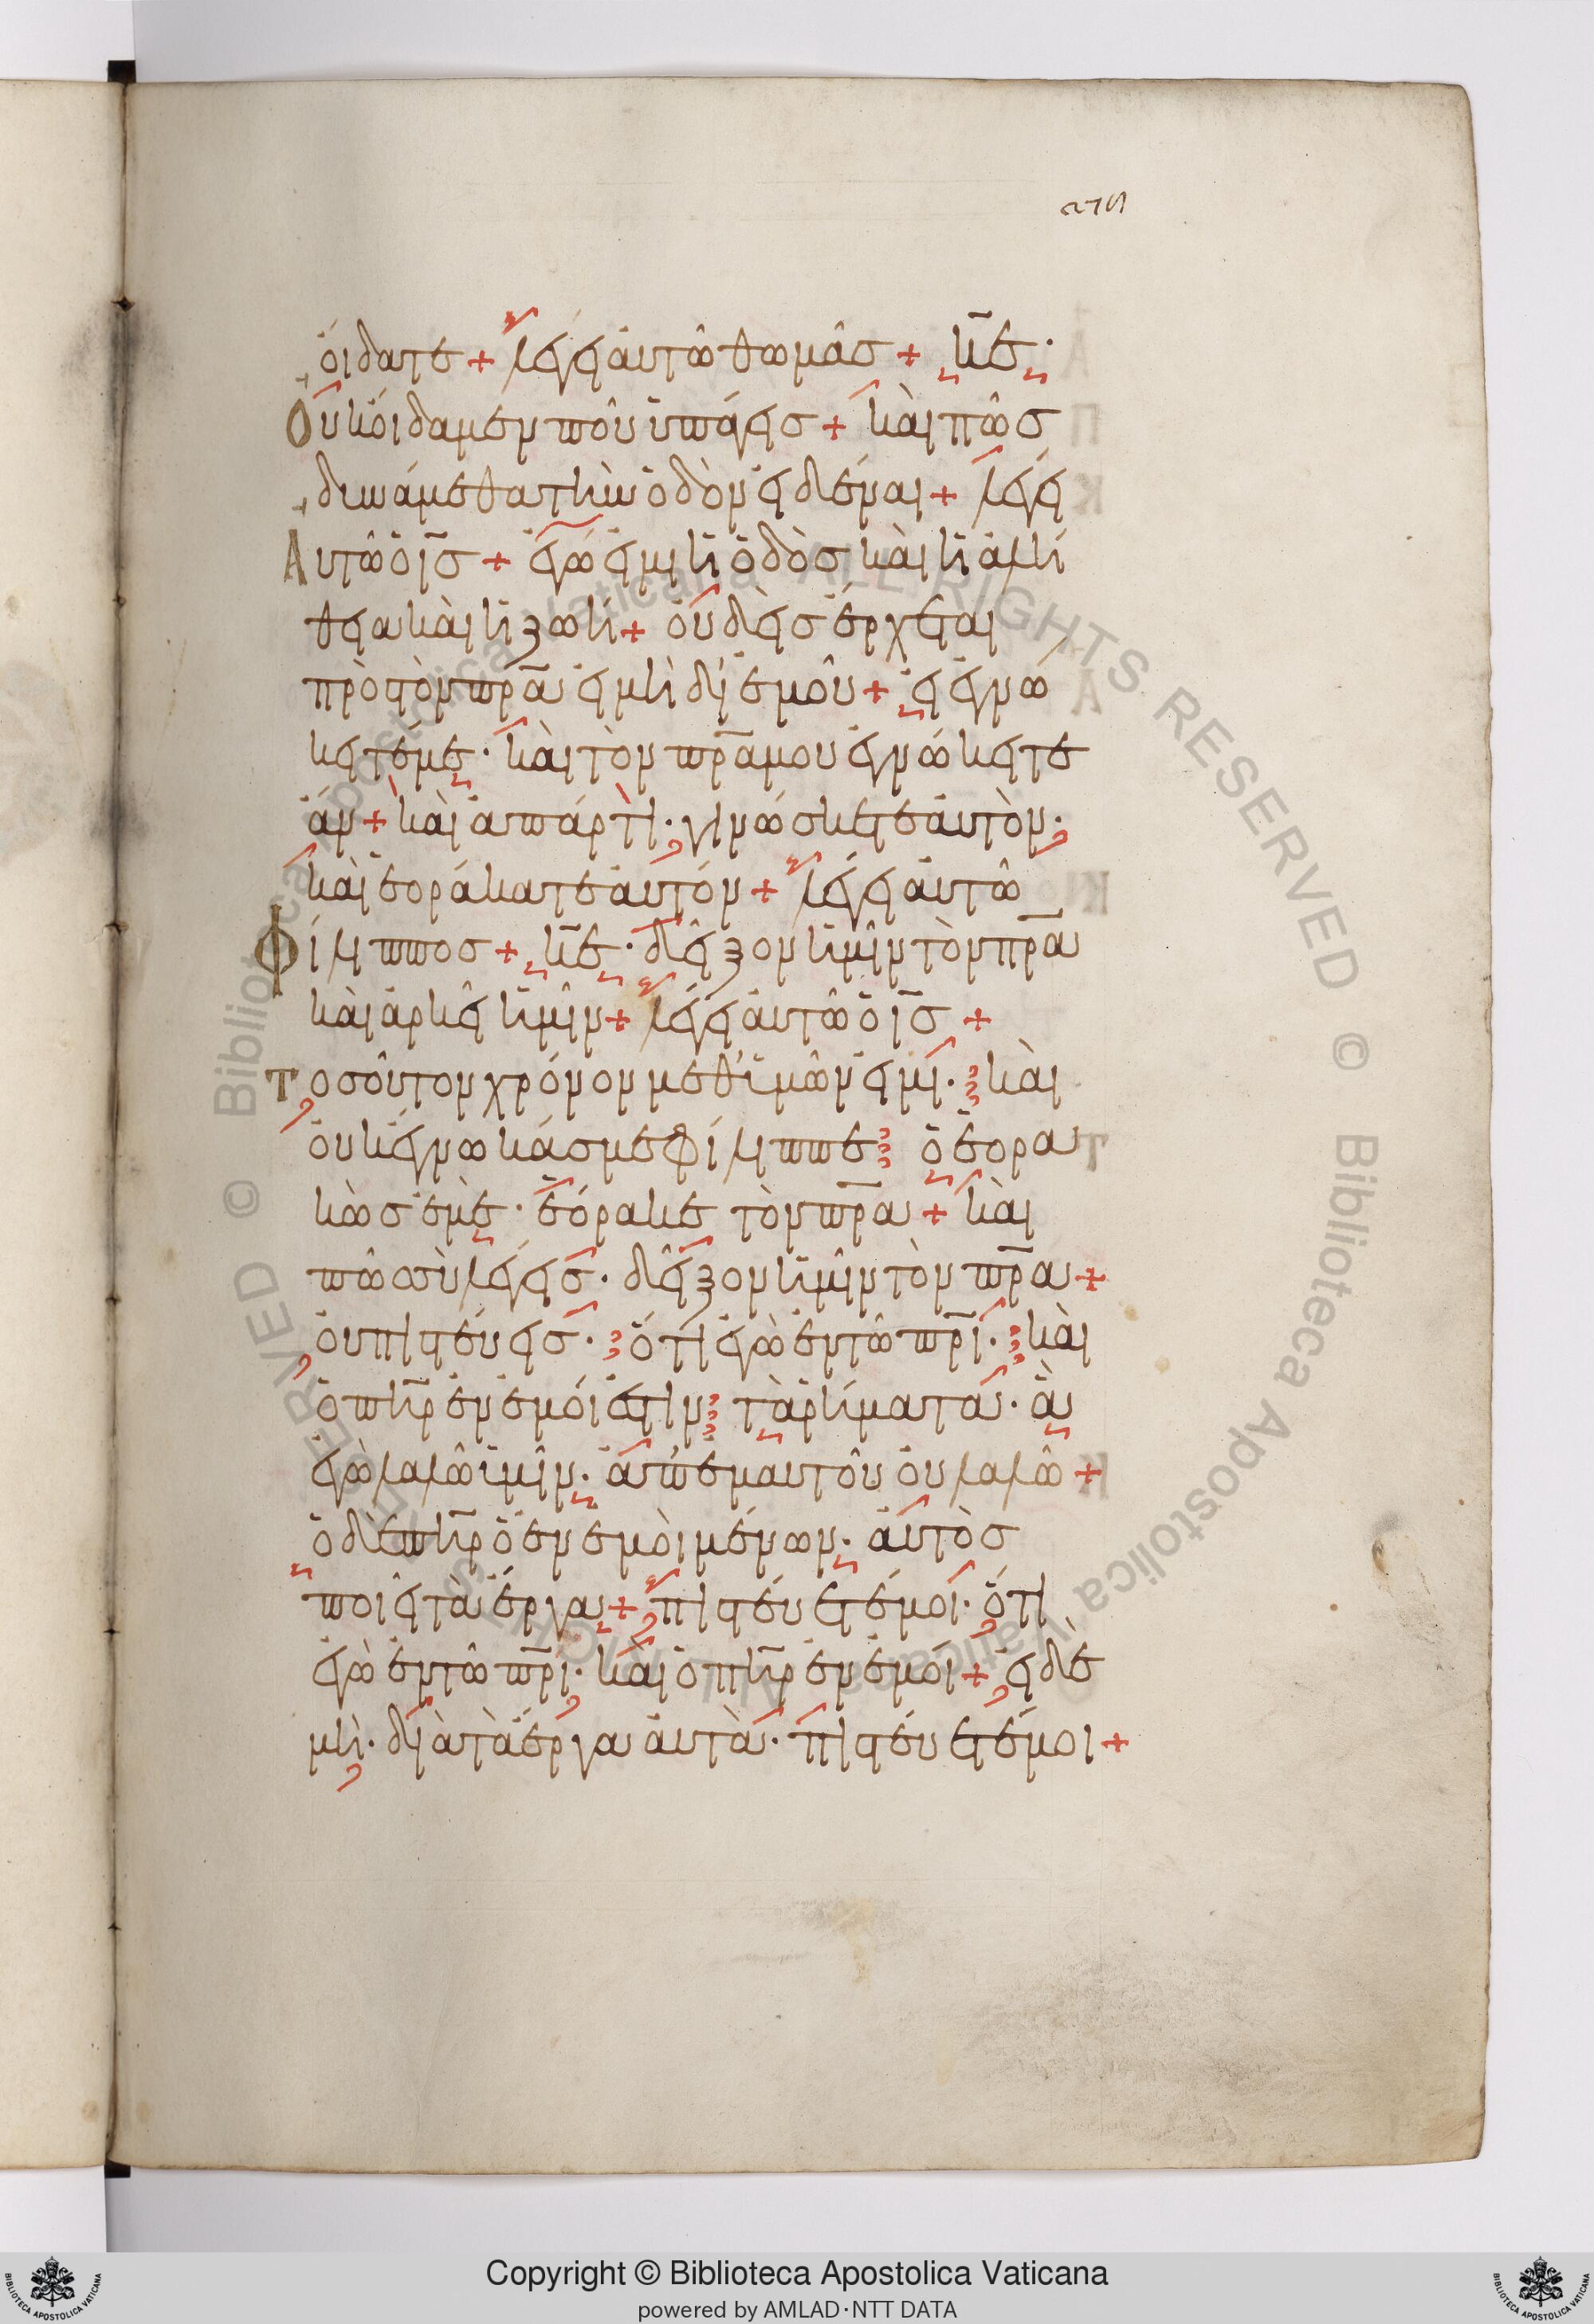 οἴδατε + λέγει αὐτῶ θωμᾶσ + κ̅ε̅·
Οὐκ οἴδαμεν ποῦ ὑπάγεισ + καὶ πῶσ
δυνάμεθα τὴν ὁδὸν εἰδέναι + λέγει
Αὐτῶ ὁ ι̅σ̅ + ἐγώ εἰμι ἡ ὁδὸσ καὶ ἡ ἀλή
θεια καὶ ἡ ζωή + οὐδεὶσ ἔρχεται
πρὸσ τὸν π̅ρ̅α̅ εἰ μὴ δι' ἐμοῦ + εἰ ἐγνώ
κειτέ με· καὶ τὸν π̅ρ̅α̅ μου ἐγνώκειτε
ἄν + καὶ ἀπάρτι· γινώσκετε αὐτὸν·
καὶ ἑοράκατε αὐτόν + λέγει αὐτῶ
Φίλιπποσ + κ̅ε̅· δεῖξον ἡμῖν τὸν π̅ρ̅α̅
καὶ ἀρκεῖ ἡμῖν + λέγει αὐτῶ ὁ ι̅σ̅ +
Τοσοῦτον χρόνον μεθ' ὑμῶν εἰμι· καὶ
οὐκ ἔγνωκάσ με φίλιππε ὁ ἑορα
κὼσ ἐμὲ· ἑόρακε τὸν π̅ρ̅α̅ + καὶ
πῶσ σὺ λέγεισ· δεῖξον ἡμῖν τὸν π̅ρ̅α̅ +
οὐ πιστέυεισ· ὅτι ἐγὼ ἐν τῶ π̅ρ̅ι̅· καὶ
ὁ π̅η̅ρ̅ ἐν ἐμοί ἐστιν τὰ ῥήματα· ἃ
ἐγὼ λαλῶ ὑμῖν· ἀπ' ἐμαυτοῦ οὐ λαλῶ +
ὁ δὲ π̅η̅ρ̅ ὁ ἐν ἐμοὶ μένων· αὐτὸσ
ποιεῖ τὰ ἔργα + πιστέυετέ μοι· ὅτι
ἐγὼ ἐν τῶ π̅ρ̅ι̅· καὶ ὁ π̅η̅ρ̅ ἐν ἐμοί + εἰ δὲ
μὴ· διὰ τὰ ἔργα αὐτὰ· πιστέυετέ μοι +
Copyright © Biblioteca Apostolica Vaticana
powered by AMLAD·NTT DATA